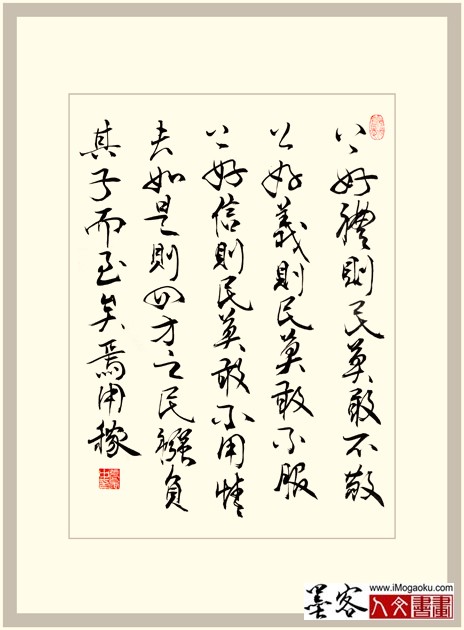 上好禮則民莫敢不敬
上好義則民莫敢不服
上好信則民莫敢不用情
夫如是則四方之民襁負
其子而至矣焉用稼
墨客
www.iMogaoku.com
人文書畫